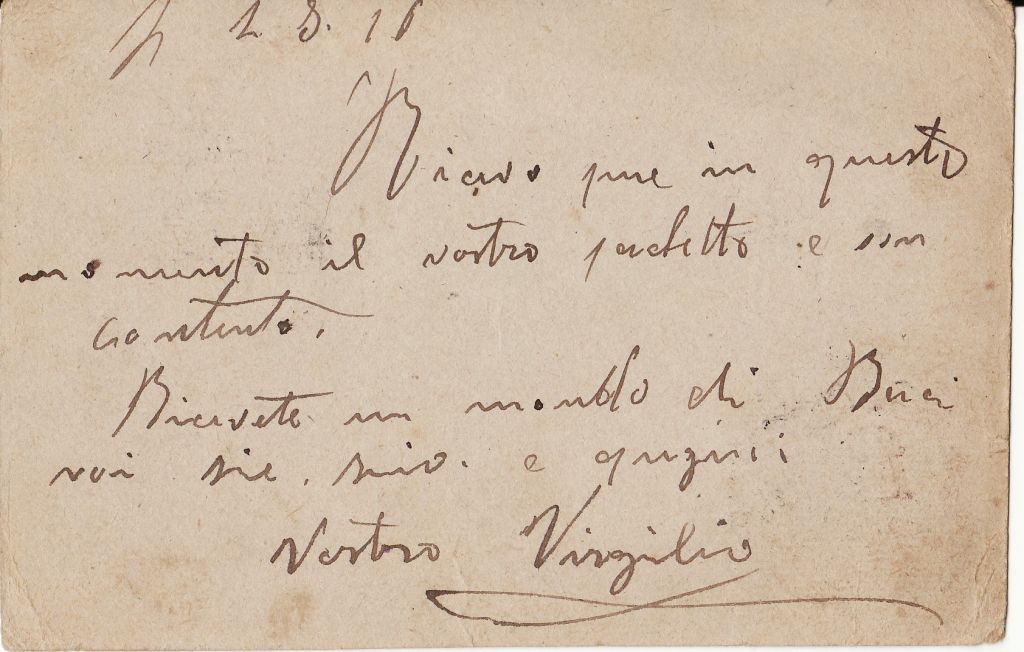 1. 3. 16
Ricevo pure in questo
momento il vostro pachetto e son
contento.
Ricevete un mondo di Baci
voi zie, zii. e cugini
Vostro Virgilio